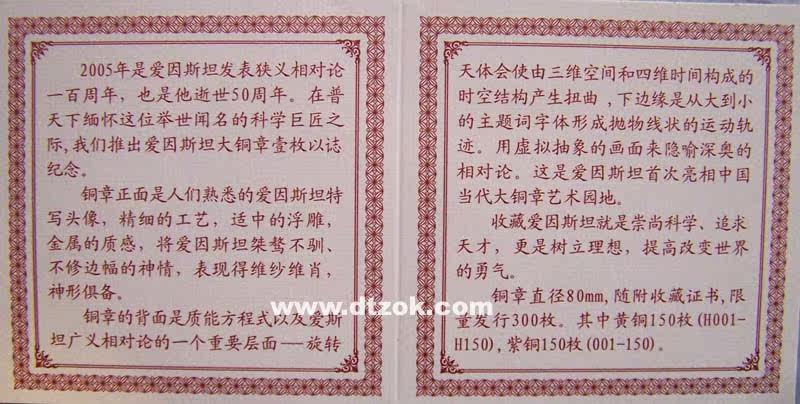 2005年是爱因斯坦发表狭义相对论
一百周年，也是他逝世50周年。在普
天下缅怀这位举世闻名的科学巨匠之
际,我们推出爱因斯坦大铜章壹枚以誌
纪念。
铜章正面是人们熟悉的爱因斯坦特
写头像，精细的工艺，适中的浮雕，
金属的质感，将爱因斯坦桀骜不驯、
不修边幅的神情，表现得维纱维肖，
神形俱备。
铜章的背面是质能方程式以及爱斯
坦广义相对论的一个重要层面──旋转
天体会使由三维空间和四维时间构成的
时空结构产生扭曲，下边缘是从大到小
的主题词字体形成抛物线状的运动轨
迹。用虚拟抽象的画面来隐喻深奥的
相对论。这是爱因斯坦首次亮相中国
当代大铜章艺术园地。
收藏爱因斯坦就是崇尚科学、追求
天才，更是树立理想，提高改变世界
的勇气。
铜章直径80mm,随附收藏证书,限
量发行300枚。其中黄铜150枚(H001-
H150),紫铜150枚(001-150)。
www.dtzok.com